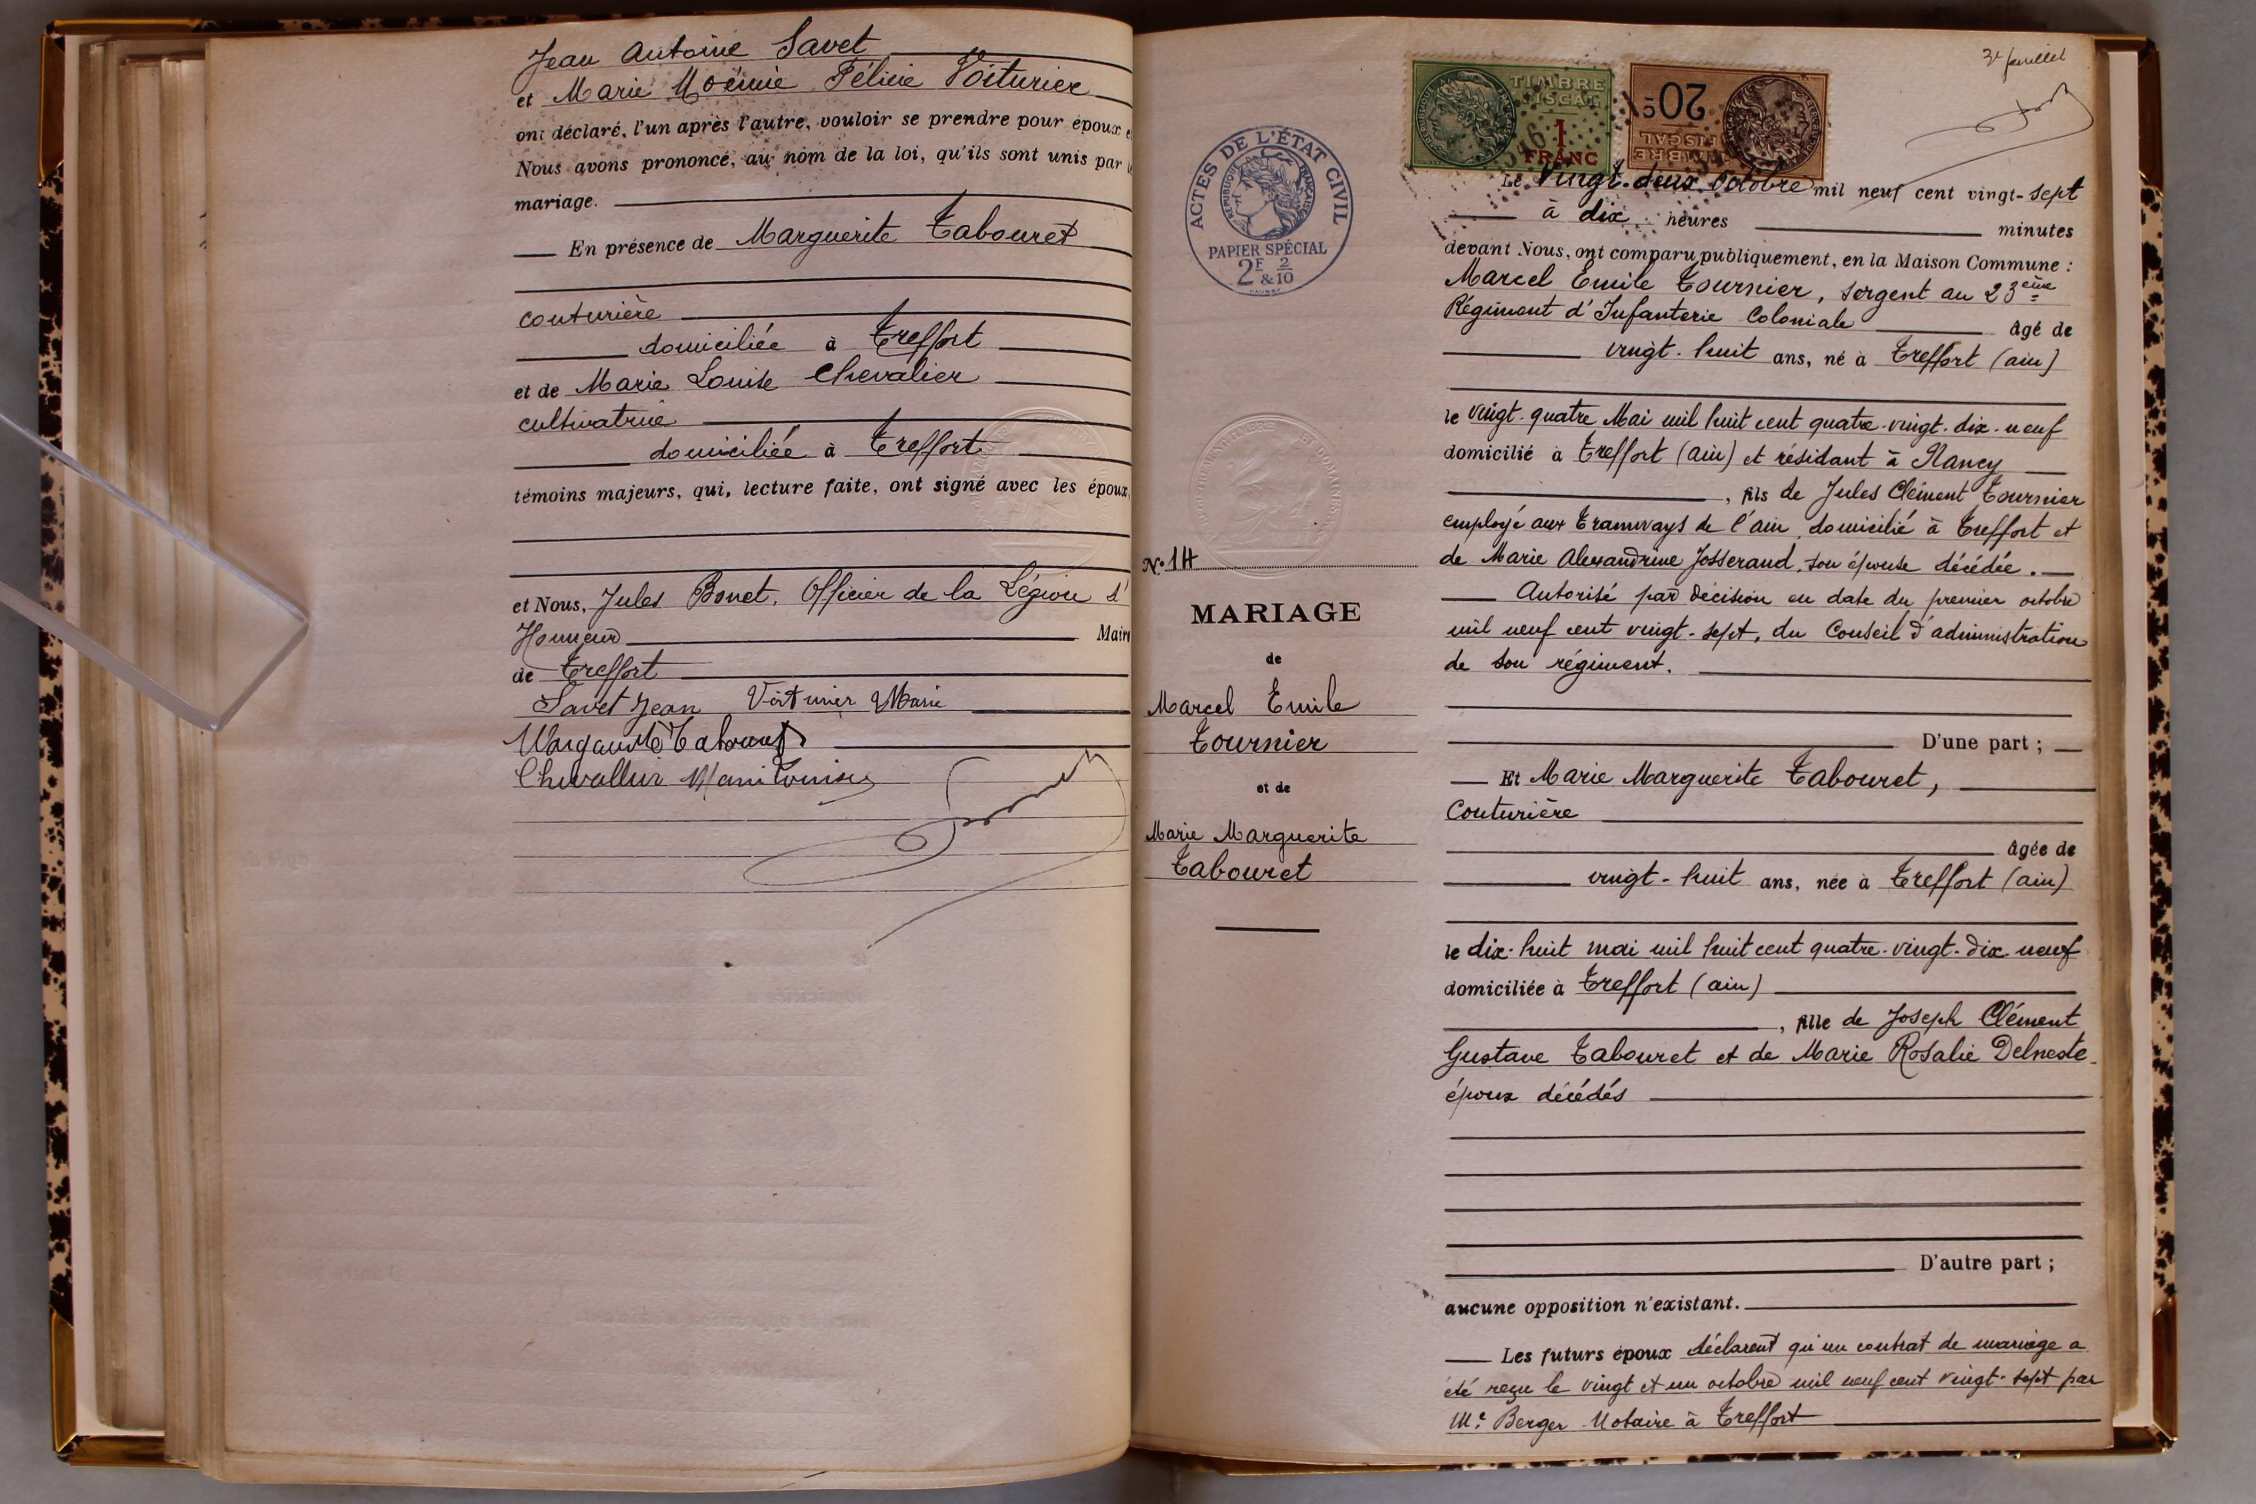 Jean Antoine Savet
et Marie Noémie Félicie Voiturier
ont déclaré, l'un après l'autre, vouloir se prendre pour époux e
Nous avons prononcé, au nom de la loi, qu'ils sont unis par l
mariage.
En présence de Marguerite Tabouret
couturière
domiciliée à Treffort
et de Marie Louise Chevalier
cultivatrice
domiciliée à Treffort
témoins majeurs, qui, lecture faite, ont signé avec les époux,
et Nous, Jules Bonet, Officier de la Légion d'
Honneur Maire
de Treffort
Savet Jean Voiturier Marie
Marguerite Tabouret
Chevallier Marie Louise
ACTES DE L'ÉTAT CIVIL
RÉPUBLIQUE FRANÇAISE
PAPIER SPÉCIAL
2F & 2/10
No 14
MARIAGE
de
Marcel Emile
Tournier
et de
Marie Marguerite
Tabouret
3e feuillet
TIMBRE
FISCAL
1
FRANC
20c
TIMBRE
FISCAL
Le vingt-deux Octobre mil neuf cent vingt-sept
à dix heures minutes
devant Nous, ont comparu publiquement, en la Maison Commune :
Marcel Emile Tournier, sergent au 23ème
Régiment d'Infanterie Coloniale âgé de
vingt-huit ans, né à Treffort (ain)
le vingt-quatre Mai mil huit cent quatre-vingt-dix-neuf
domicilié à Treffort (ain) et résidant à Nancy
, fils de Jules Clément Tournier
employé aux Tramways de l'ain, domicilié à Treffort et
de Marie Alexandrine Josserand, son épouse décédée.
Autorisé par décision en date du premier octobre
mil neuf cent vingt-sept, du Conseil d'administration
de son régiment.
D'une part ;
Et Marie Marguerite Tabouret,
Couturière
âgée de
vingt-huit ans, née à Treffort (ain)
le dix-huit mai mil huit cent quatre-vingt-dix-neuf
domiciliée à Treffort (ain)
, fille de Joseph Clément
Gustave Tabouret et de Marie Rosalie Delneste
époux décédés
D'autre part ;
aucune opposition n'existant.
Les futurs époux déclarent qu'un contrat de mariage a
été reçu le vingt et un octobre mil neuf cent vingt-sept par
Me Berger Notaire à Treffort